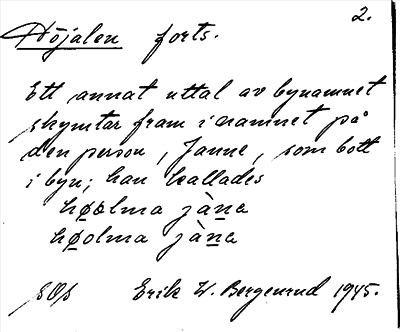 2.
Höjalen forts.
Ett annat uttal av bynamnet
skymtar fram i namnet på
den person, Janne, som bott
i byn; han kallades
høolma jàna
høolma jàna
sOs Erik W. Bergenrud 1945.